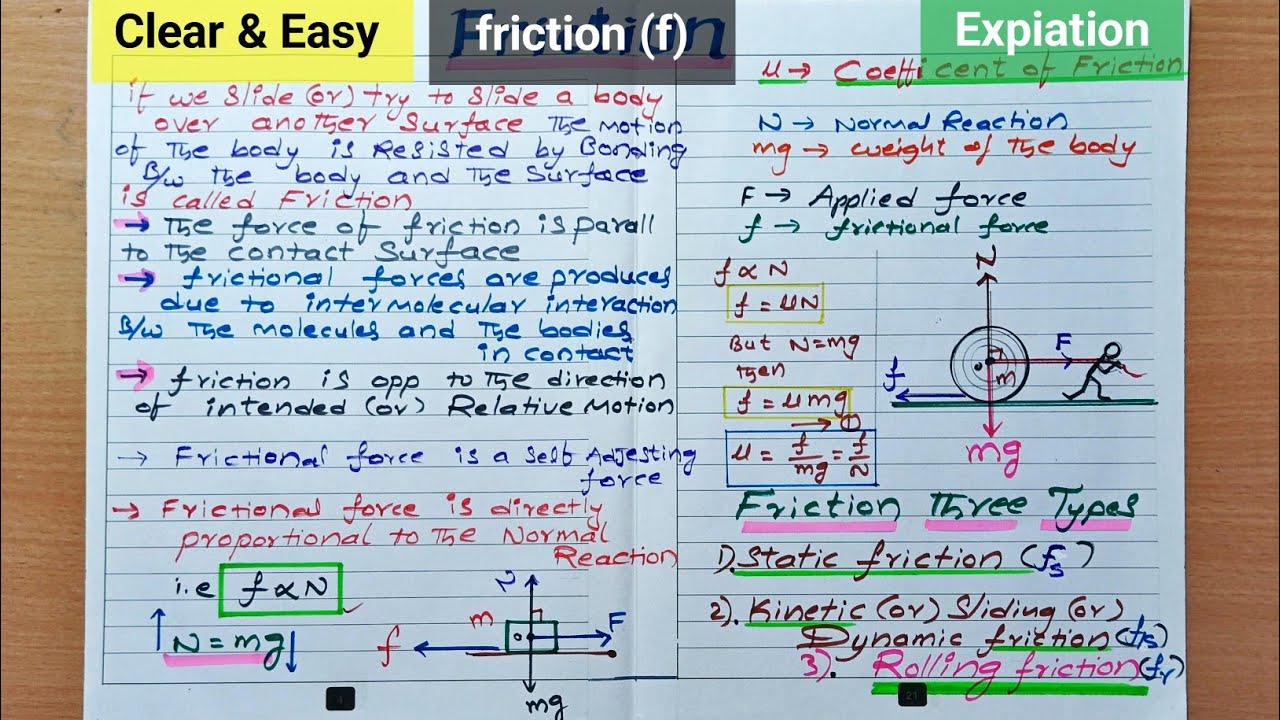 Clear & Easy
friction (f)
Expiation
Friction
if we slide (or) try to slide a body
over another surface the motion
of the body is Resisted by Bonding
B/w the body and the surface
is called Friction
→ The force of friction is parall
to the contact surface
→ frictional forces are produces
due to intermolecular interaction
B/w the molecules and the bodies
in contact
→ friction is opp to the direction
of intended (or) Relative motion
→ Frictional force is a self Adjesting
force
→ Frictional force is directly
proportional to the Normal
Reaction
i.e f ∝ N
↑ N = mg ↓
N
m
f
F
mg
4
μ → Coefficent of Friction
N → Normal Reaction
mg → weight of the body
F → Applied force
f → frictional force
f ∝ N
f = μN
But N = mg
then
f = μmg
→ ①
μ = f/mg = f/N
N
F
f
m
mg
Friction Three Types
1). Static friction (fs)
2). Kinetic (or) Sliding (or)
Dynamic friction (fk)
3). Rolling friction (fr)
21